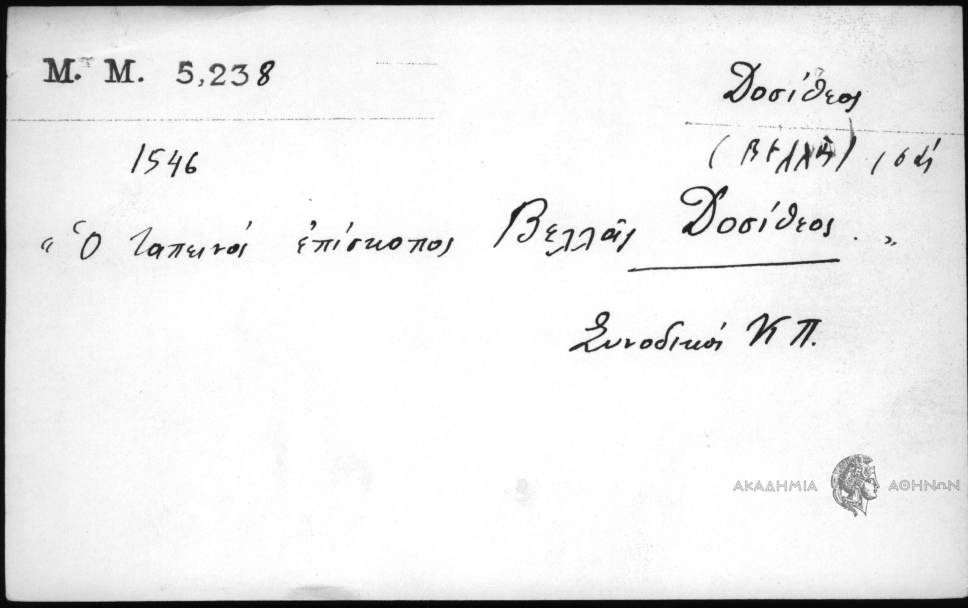 M. M. 5,238
Δοσίθεος
1546
(Βελλᾶ)
“Ὁ ταπεινὸς ἐπίσκοπος Βελλᾶς Δοσίθεος.”
Συνοδικὸς Κ Π.
ΑΚΑΔΗΜΙΑ ΑΘΗΝΩΝ